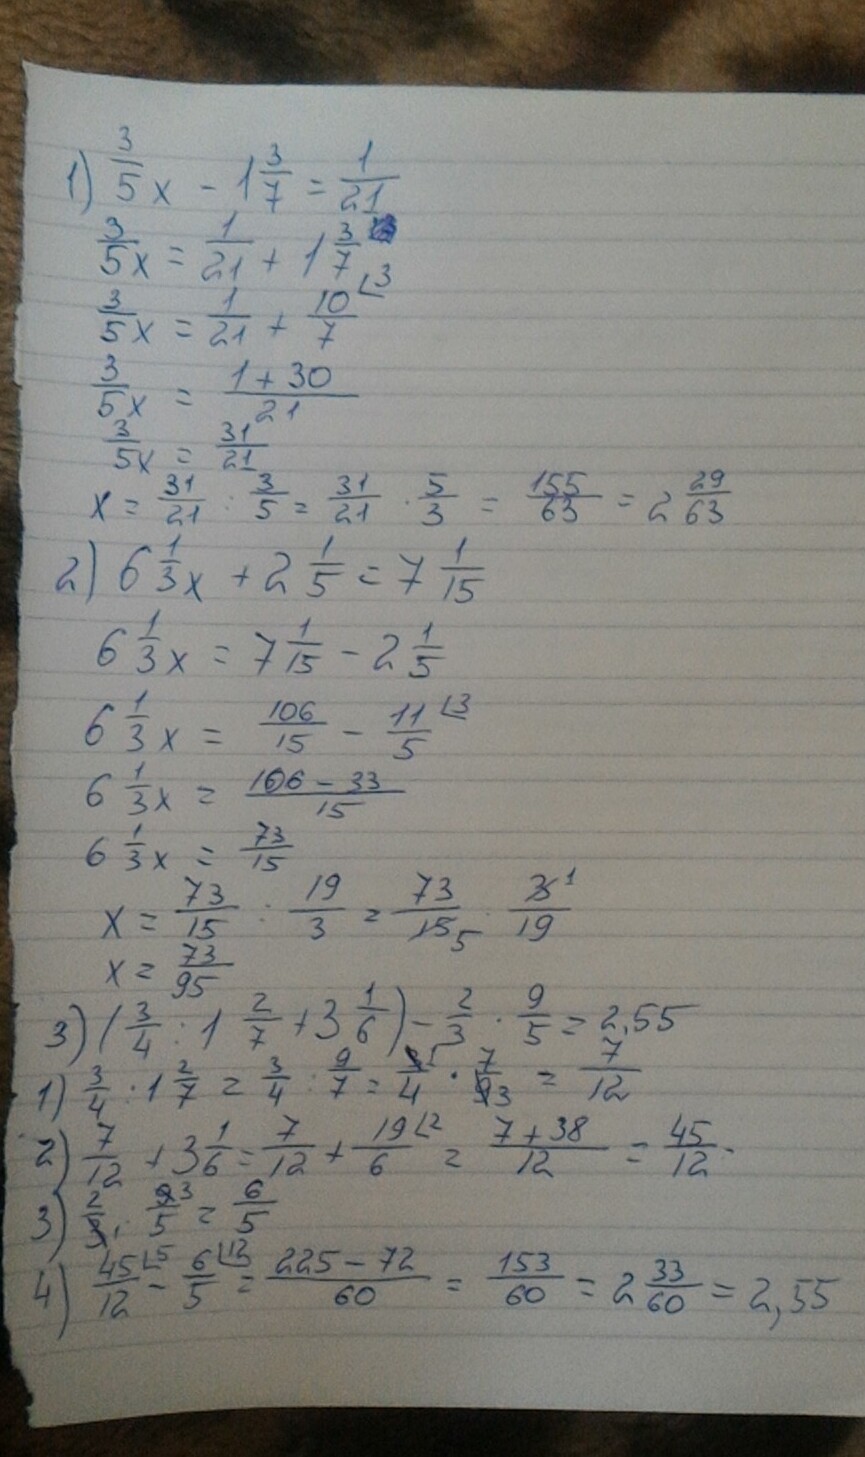 1) 3/5 x - 1 3/7 = 1/21
3/5 x = 1/21 + 1 3/7
3/5 x = 1/21 + 10/7 ⌊3
3/5 x = (1 + 30)/21
3/5 x = 31/21
x = 31/21 : 3/5 = 31/21 · 5/3 = 155/63 = 2 29/63
2) 6 1/3 x + 2 1/5 = 7 1/15
6 1/3 x = 7 1/15 - 2 1/5
6 1/3 x = 106/15 - 11/5 ⌊3
6 1/3 x = (106 - 33)/15
6 1/3 x = 73/15
x = 73/15 : 19/3 = 73/15 5 · 3 1/19
x = 73/95
3) (3/4 : 1 2/7 + 3 1/6) - 2/3 · 9/5 = 2,55
1) 3/4 : 1 2/7 = 3/4 : 9/7 = 3 1/4 · 7/9 3 = 7/12
2) 7/12 + 3 1/6 = 7/12 + 19/6 ⌊2 = (7 + 38)/12 = 45/12
3) 2/3 1 · 9 3/5 = 6/5
4) 45/12 ⌊5 - 6/5 ⌊12 = (225 - 72)/60 = 153/60 = 2 33/60 = 2,55